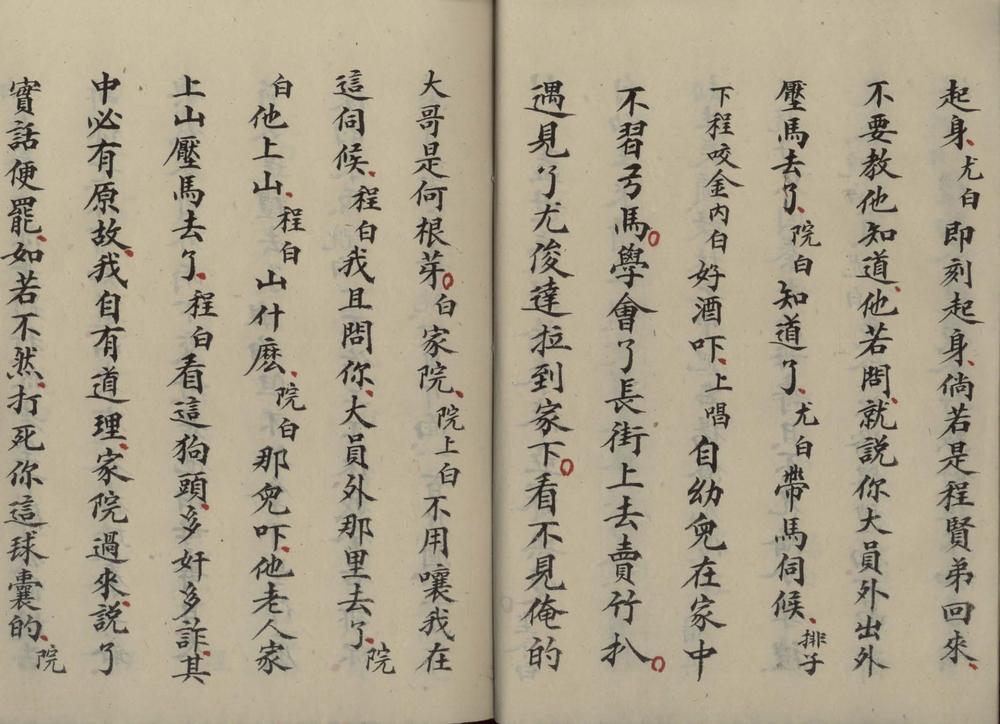 起身、尤白即刻起身、倘若是程賢弟回來、
不要教他知道、他若問、就説你大員外出外
壓馬去了、院白知道了、尤白帶馬伺候、排子
下程咬金内白好酒吓、上唱自幼兒在家中
不習弓馬。學會了長街上去賣竹扒。
遇見了尤俊達拉到家下。看不見俺的
大哥是何根芽。白家院、院上白不用嚷我在
這伺候、程白我且問你、大員外那里去了、院
白他上山、程白山什麽、院白那兒吓、他老人家
上山壓馬去了、程白看這狗頭、多奸多詐、其
中必有原故、我自有道理、家院過來、説了
實話便罷、如若不然、打死你這球囊的、院